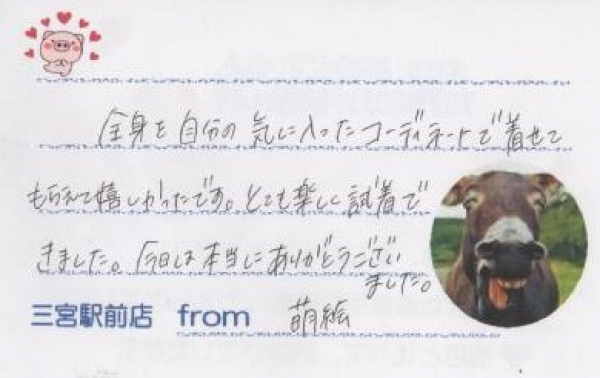 全身を自分の気に入ったコーディネートで着せて
もらえて嬉しかったです。とても楽しく試着で
きました。今日は本当にありがとうござい
ました。
三宮駅前店 from 萌絵